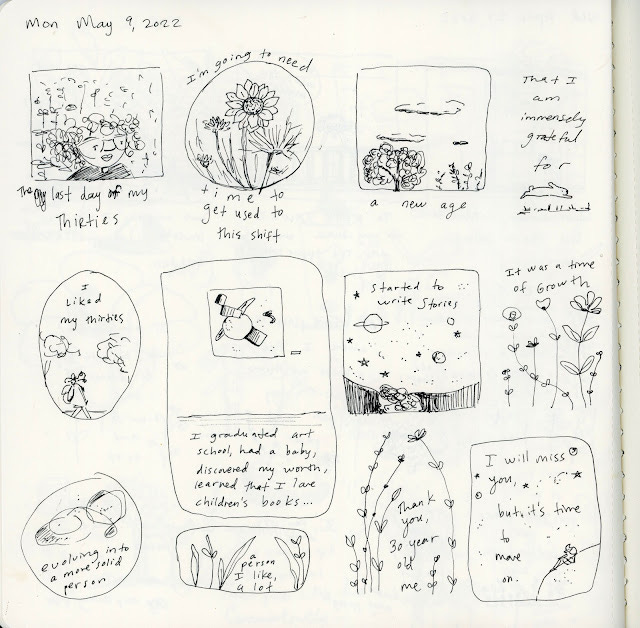 Mon May 9, 2022
The last day of my
Thirties
I'm going to need
time to
get used to
this shift
a new age
That I
am
immensely
grateful
for
I
Liked
my thirties
I graduated art
school, had a baby,
discovered my worth,
learned that I love
children's books...
Started to
write Stories
It was a time
of Growth
evolving into
a more solid
person
a
person
I like,
a lot
Thank
you,
30 year
old
me
I will miss
you,
but, it's time
to
move
on.